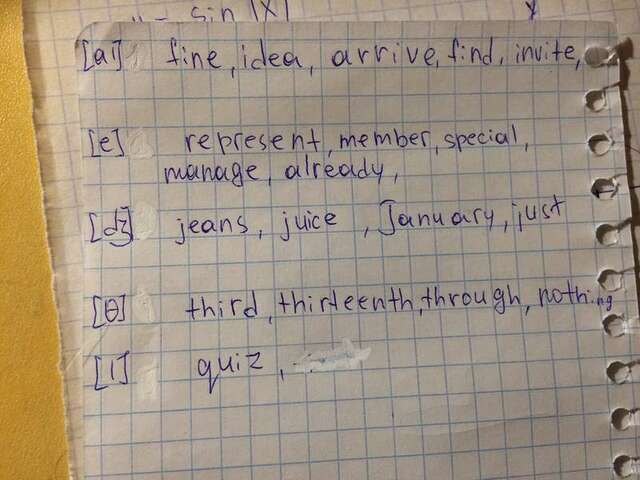 y = sin |x|
[ai] fine, idea, arrive, find, invite,
[e] represent, member, special,
manage, already,
[dʒ] jeans, juice, January, just
[θ] third, thirteenth, through, nothing
[i] quiz,